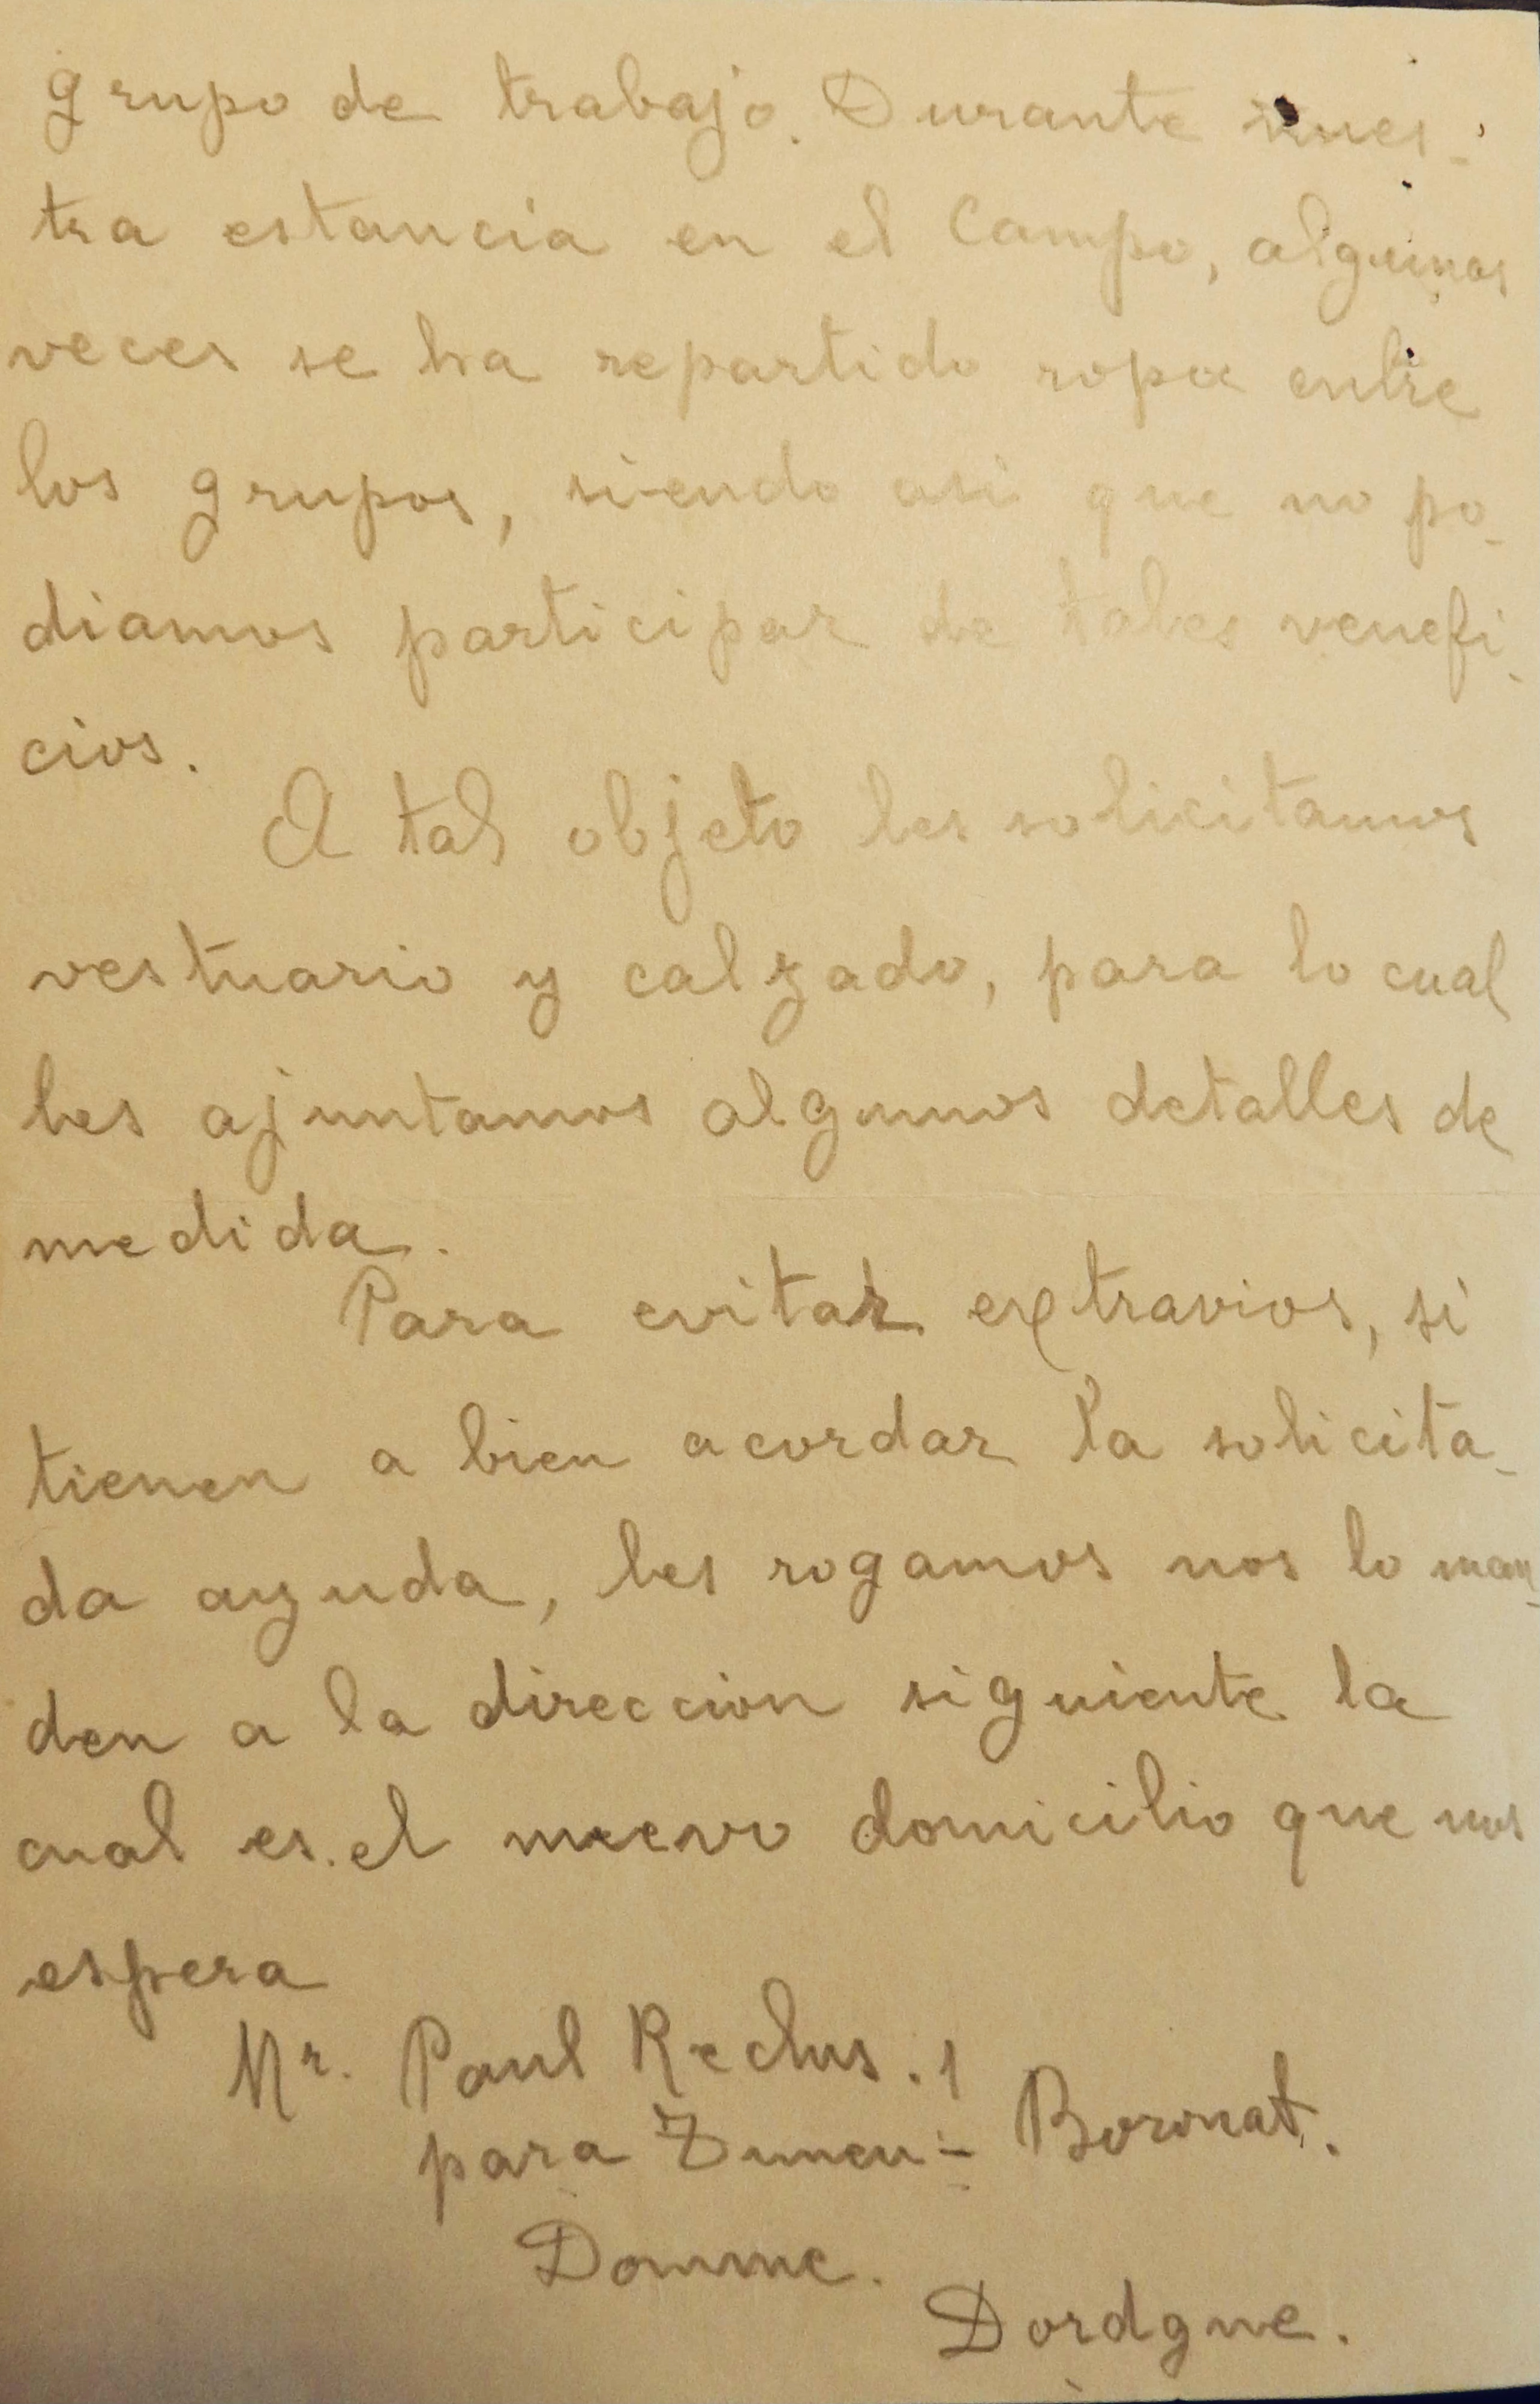 grupo de trabajo. Durante nues-
tra estancia en el Campo, algunas
veces se ha repartido ropa entre
los grupos, siendo asi que no po-
diamos participar de tales venefi-
cios.
A tal objeto les solicitamos
vestuario y calzado, para lo cual
les ajuntamos algunos detalles de
medida.
Para evitar extravios, si
tienen a bien acordar la solicita-
da ayuda, les rogamos nos lo man-
den a la direccion siguiente la
cual es el nuevo domicilio que nos
espera
Mr. Paul Reclus.
para - Boronat.
Domme.
Dordgne.